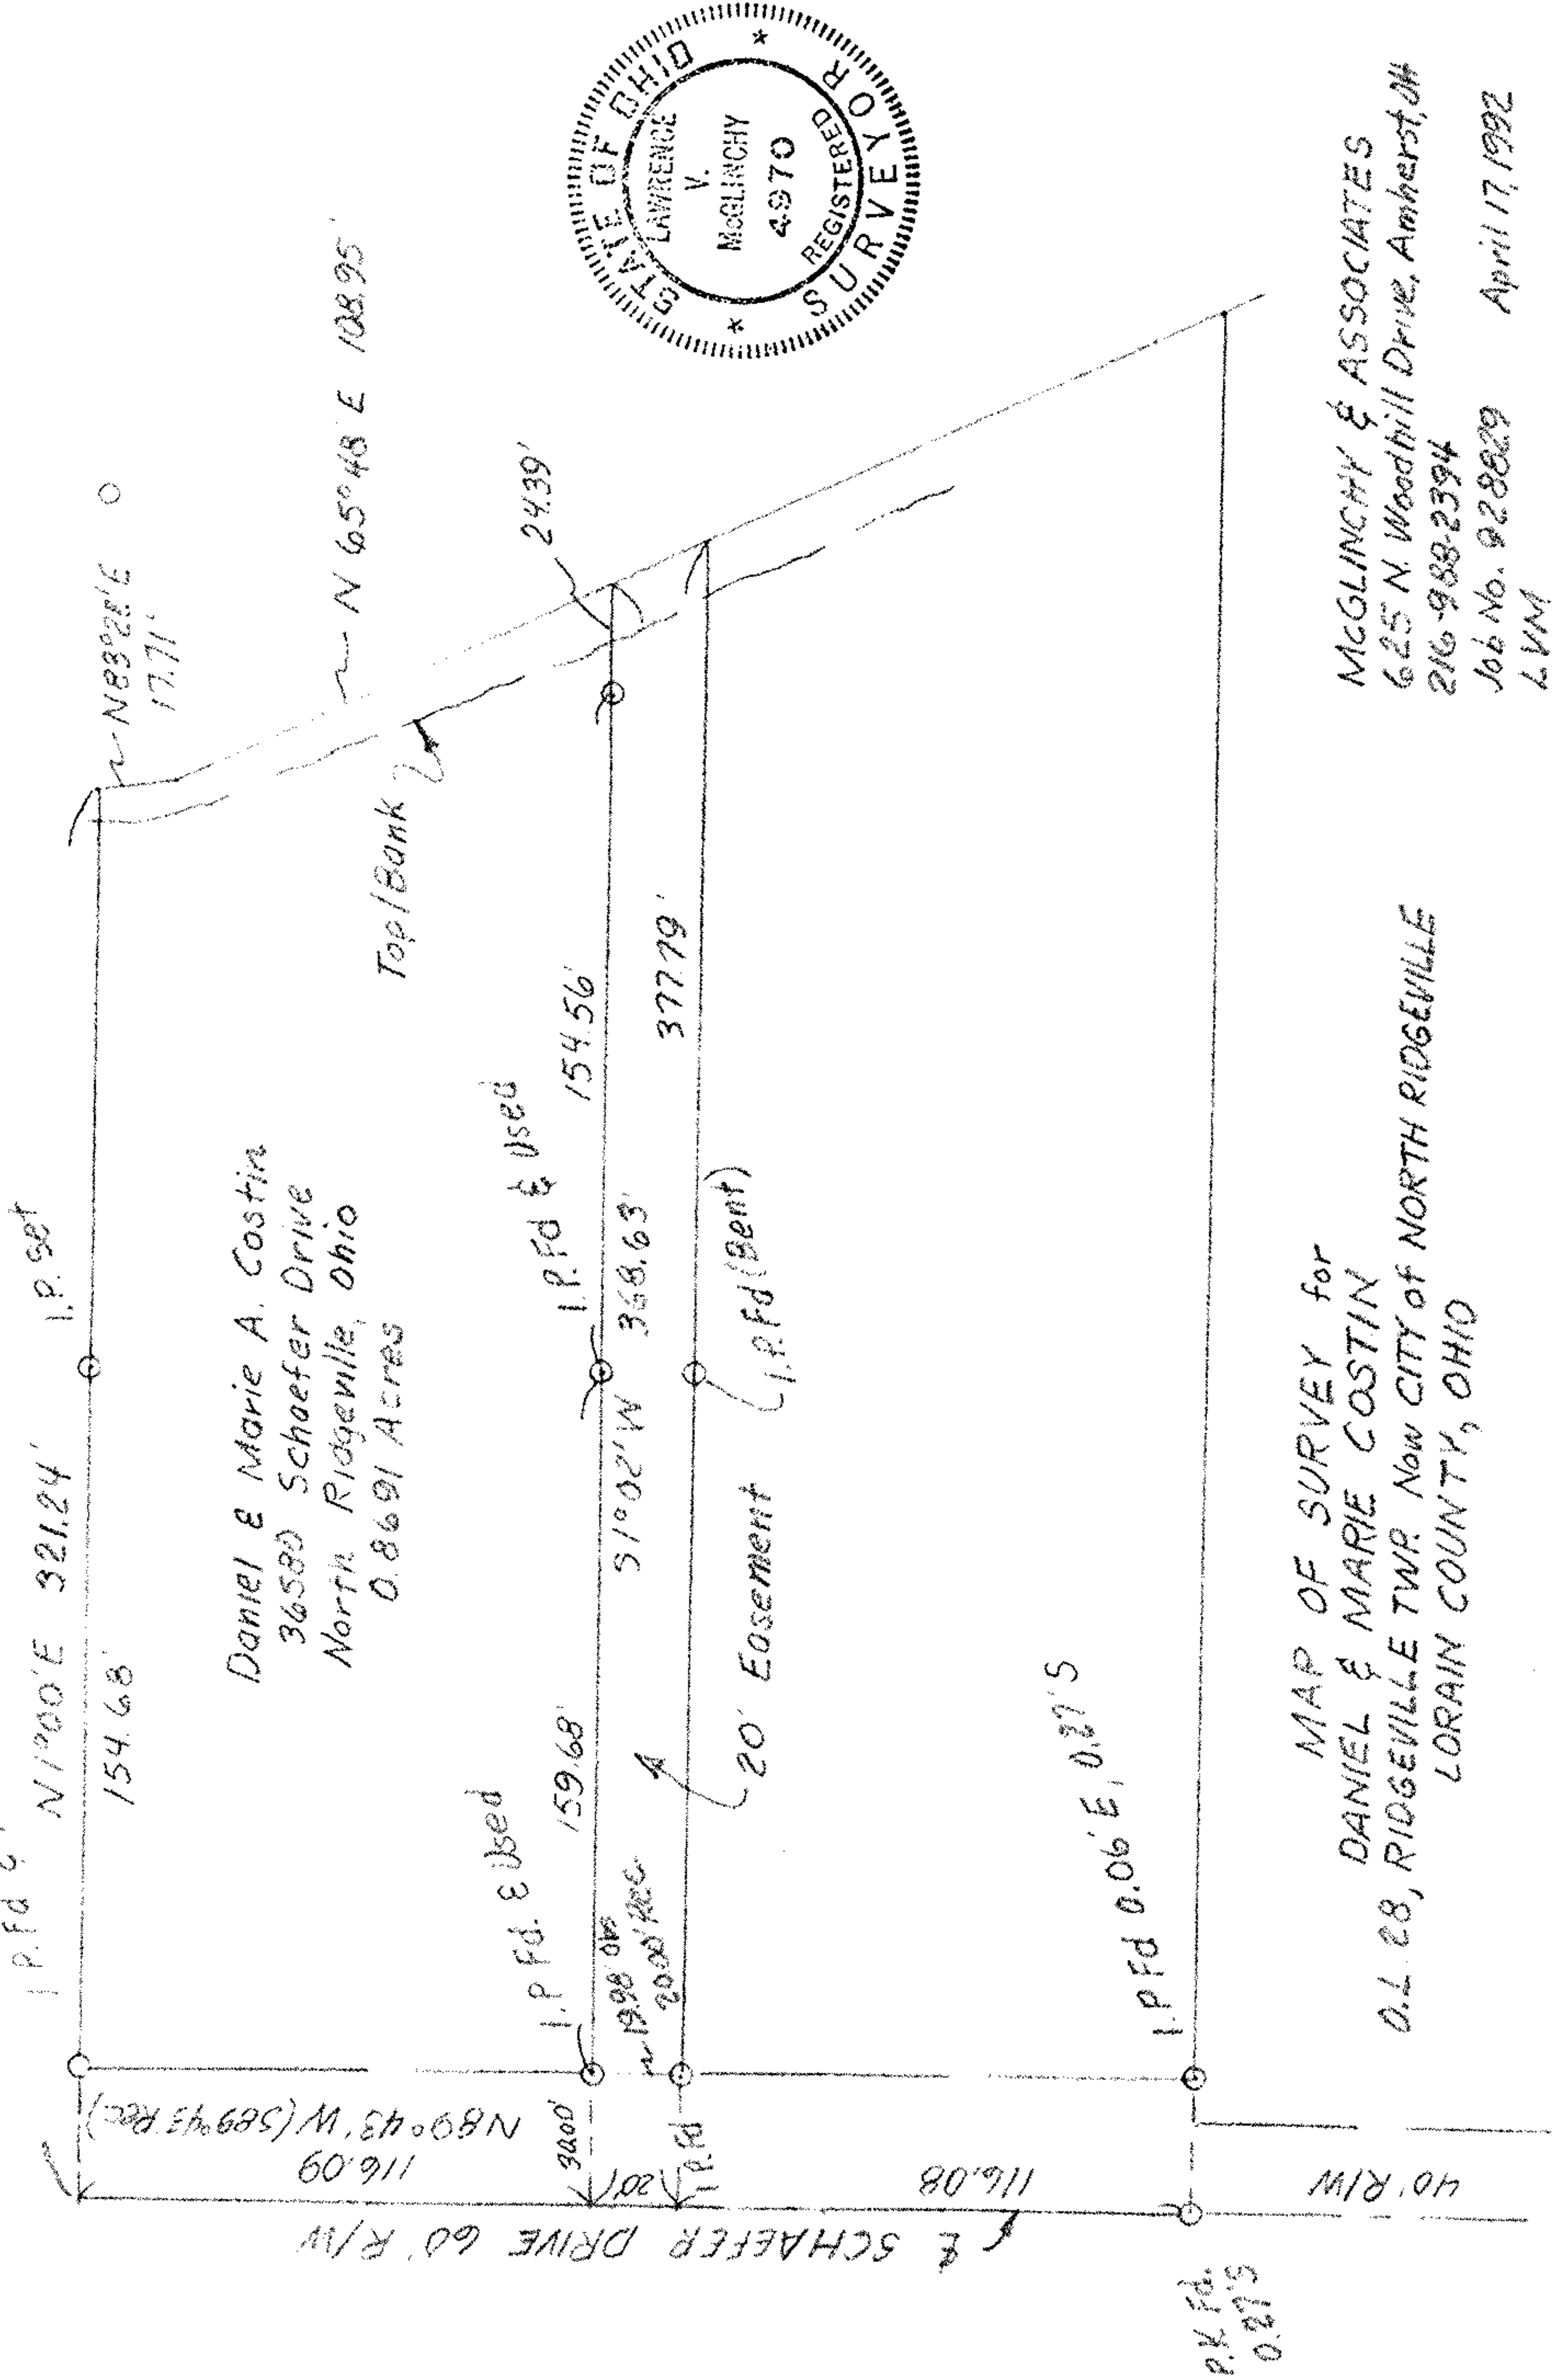 I.P. Fd
N 1°00' E 321.24'
I.P. Set
154.68'
N83°28'E
17.71'
N 65°48' E 108.95'
Daniel & Marie A. Costin
36580 Schaefer Drive
North Ridgeville, Ohio
0.8691 Acres
Top/Bank
I.P. Fd. & Used
159.68'
I.P. Fd & Used
154.56'
24.39'
19.98' Obs
20.00' Rec.
S1°02'W 368.63'
377.79'
20' Easement
I.P. Fd (Bent)
I.P. Fd 0.06' E, 0.27' S
N89°43' W (S89°43' Rec.)
116.09
30.00'
20'
I.P. Fd
116.08
40' R/W
℄ SCHAEFER DRIVE 60' R/W
P.K. Fd.
0.27'S
STATE OF OHIO
LAWRENCE
V.
McGLINCHY
4970
REGISTERED
SURVEYOR
MAP OF SURVEY for
DANIEL & MARIE COSTIN
O.L. 28, RIDGEVILLE TWP. Now CITY of NORTH RIDGEVILLE
LORAIN COUNTY, OHIO
McGLINCHY & ASSOCIATES
625 N. Woodhill Drive, Amherst, OH
216-988-2394
Job No. 928829 April 17, 1992
LVM